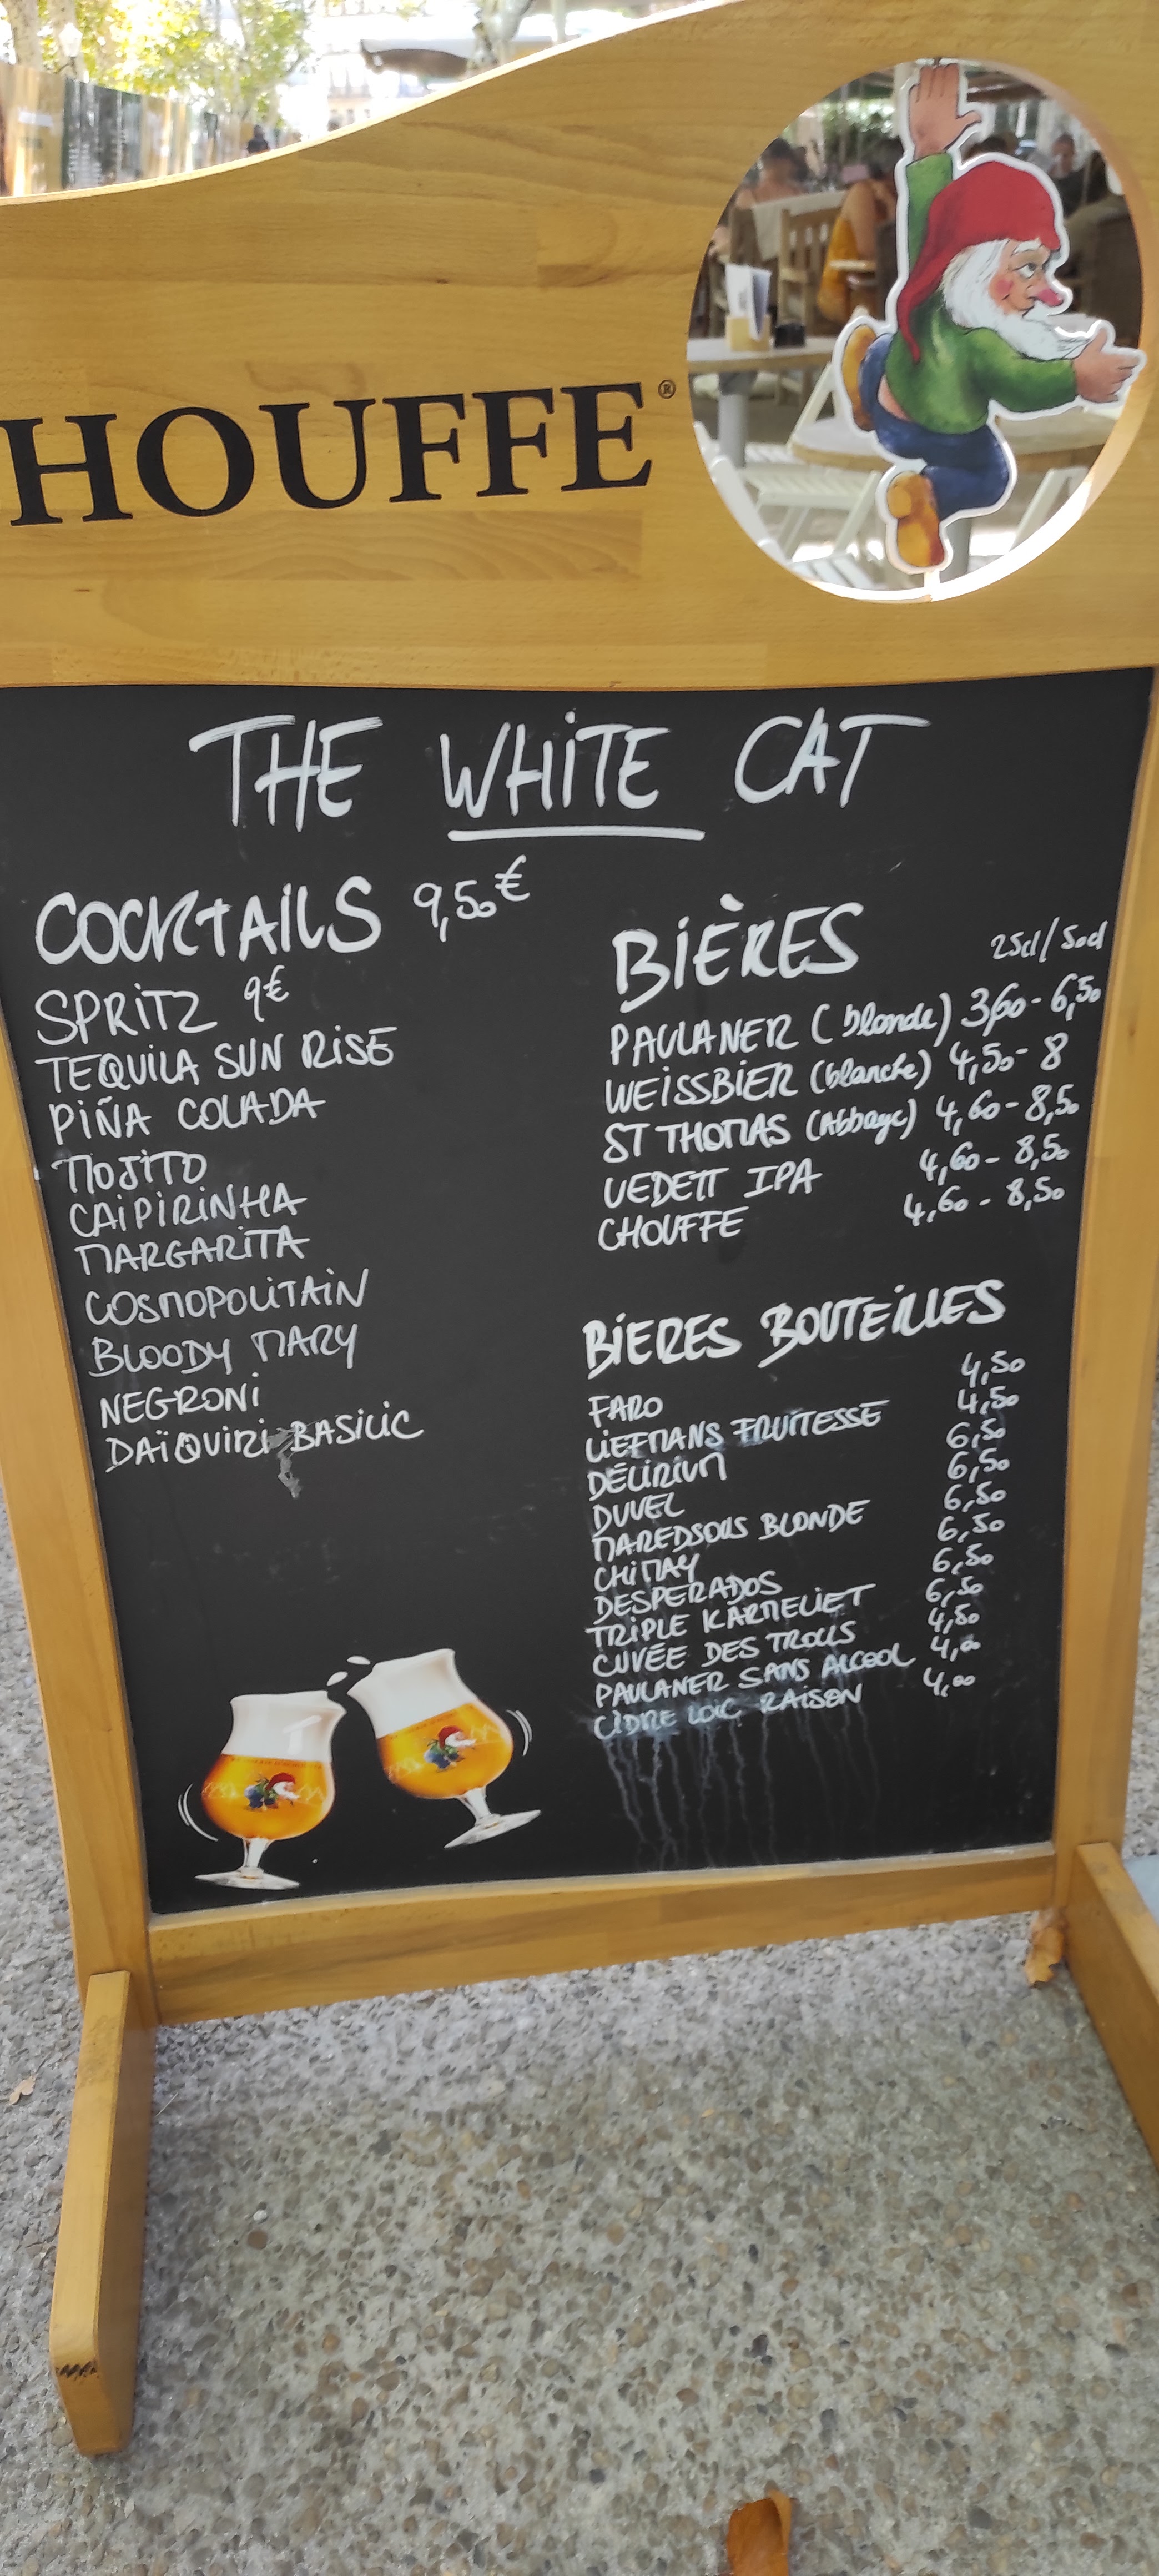 HOUFFE®
THE WHITE CAT
COCKTAILS 9,50€
SPRITZ 9€
TEQUILA SUN RISE
PIÑA COLADA
MOJITO
CAIPIRINHA
MARGARITA
COSMOPOLITAIN
BLOODY MARY
NEGRONI
DAÏQUIRI BASILIC
BIÈRES 25cl/50cl
PAULANER (blonde) 3,60-6,50
WEISSBIER (blanche) 4,50-8
ST THOMAS (Abbaye) 4,60-8,50
VEDETT IPA 4,60-8,50
CHOUFFE 4,60-8,50
BIERES BOUTEILLES
FARO 4,50
LIEFMANS FRUITESSE 4,50
DÉLIRIUM 6,50
DUVEL 6,50
MAREDSOUS BLONDE 6,50
CHIMAY 6,50
DESPERADOS 6,50
TRIPLE KARMELIET 6,50
CUVÉE DES TROLLS 4,50
PAULANER SANS ALCOOL 4,00
CIDRE LOIC RAISON 4,00